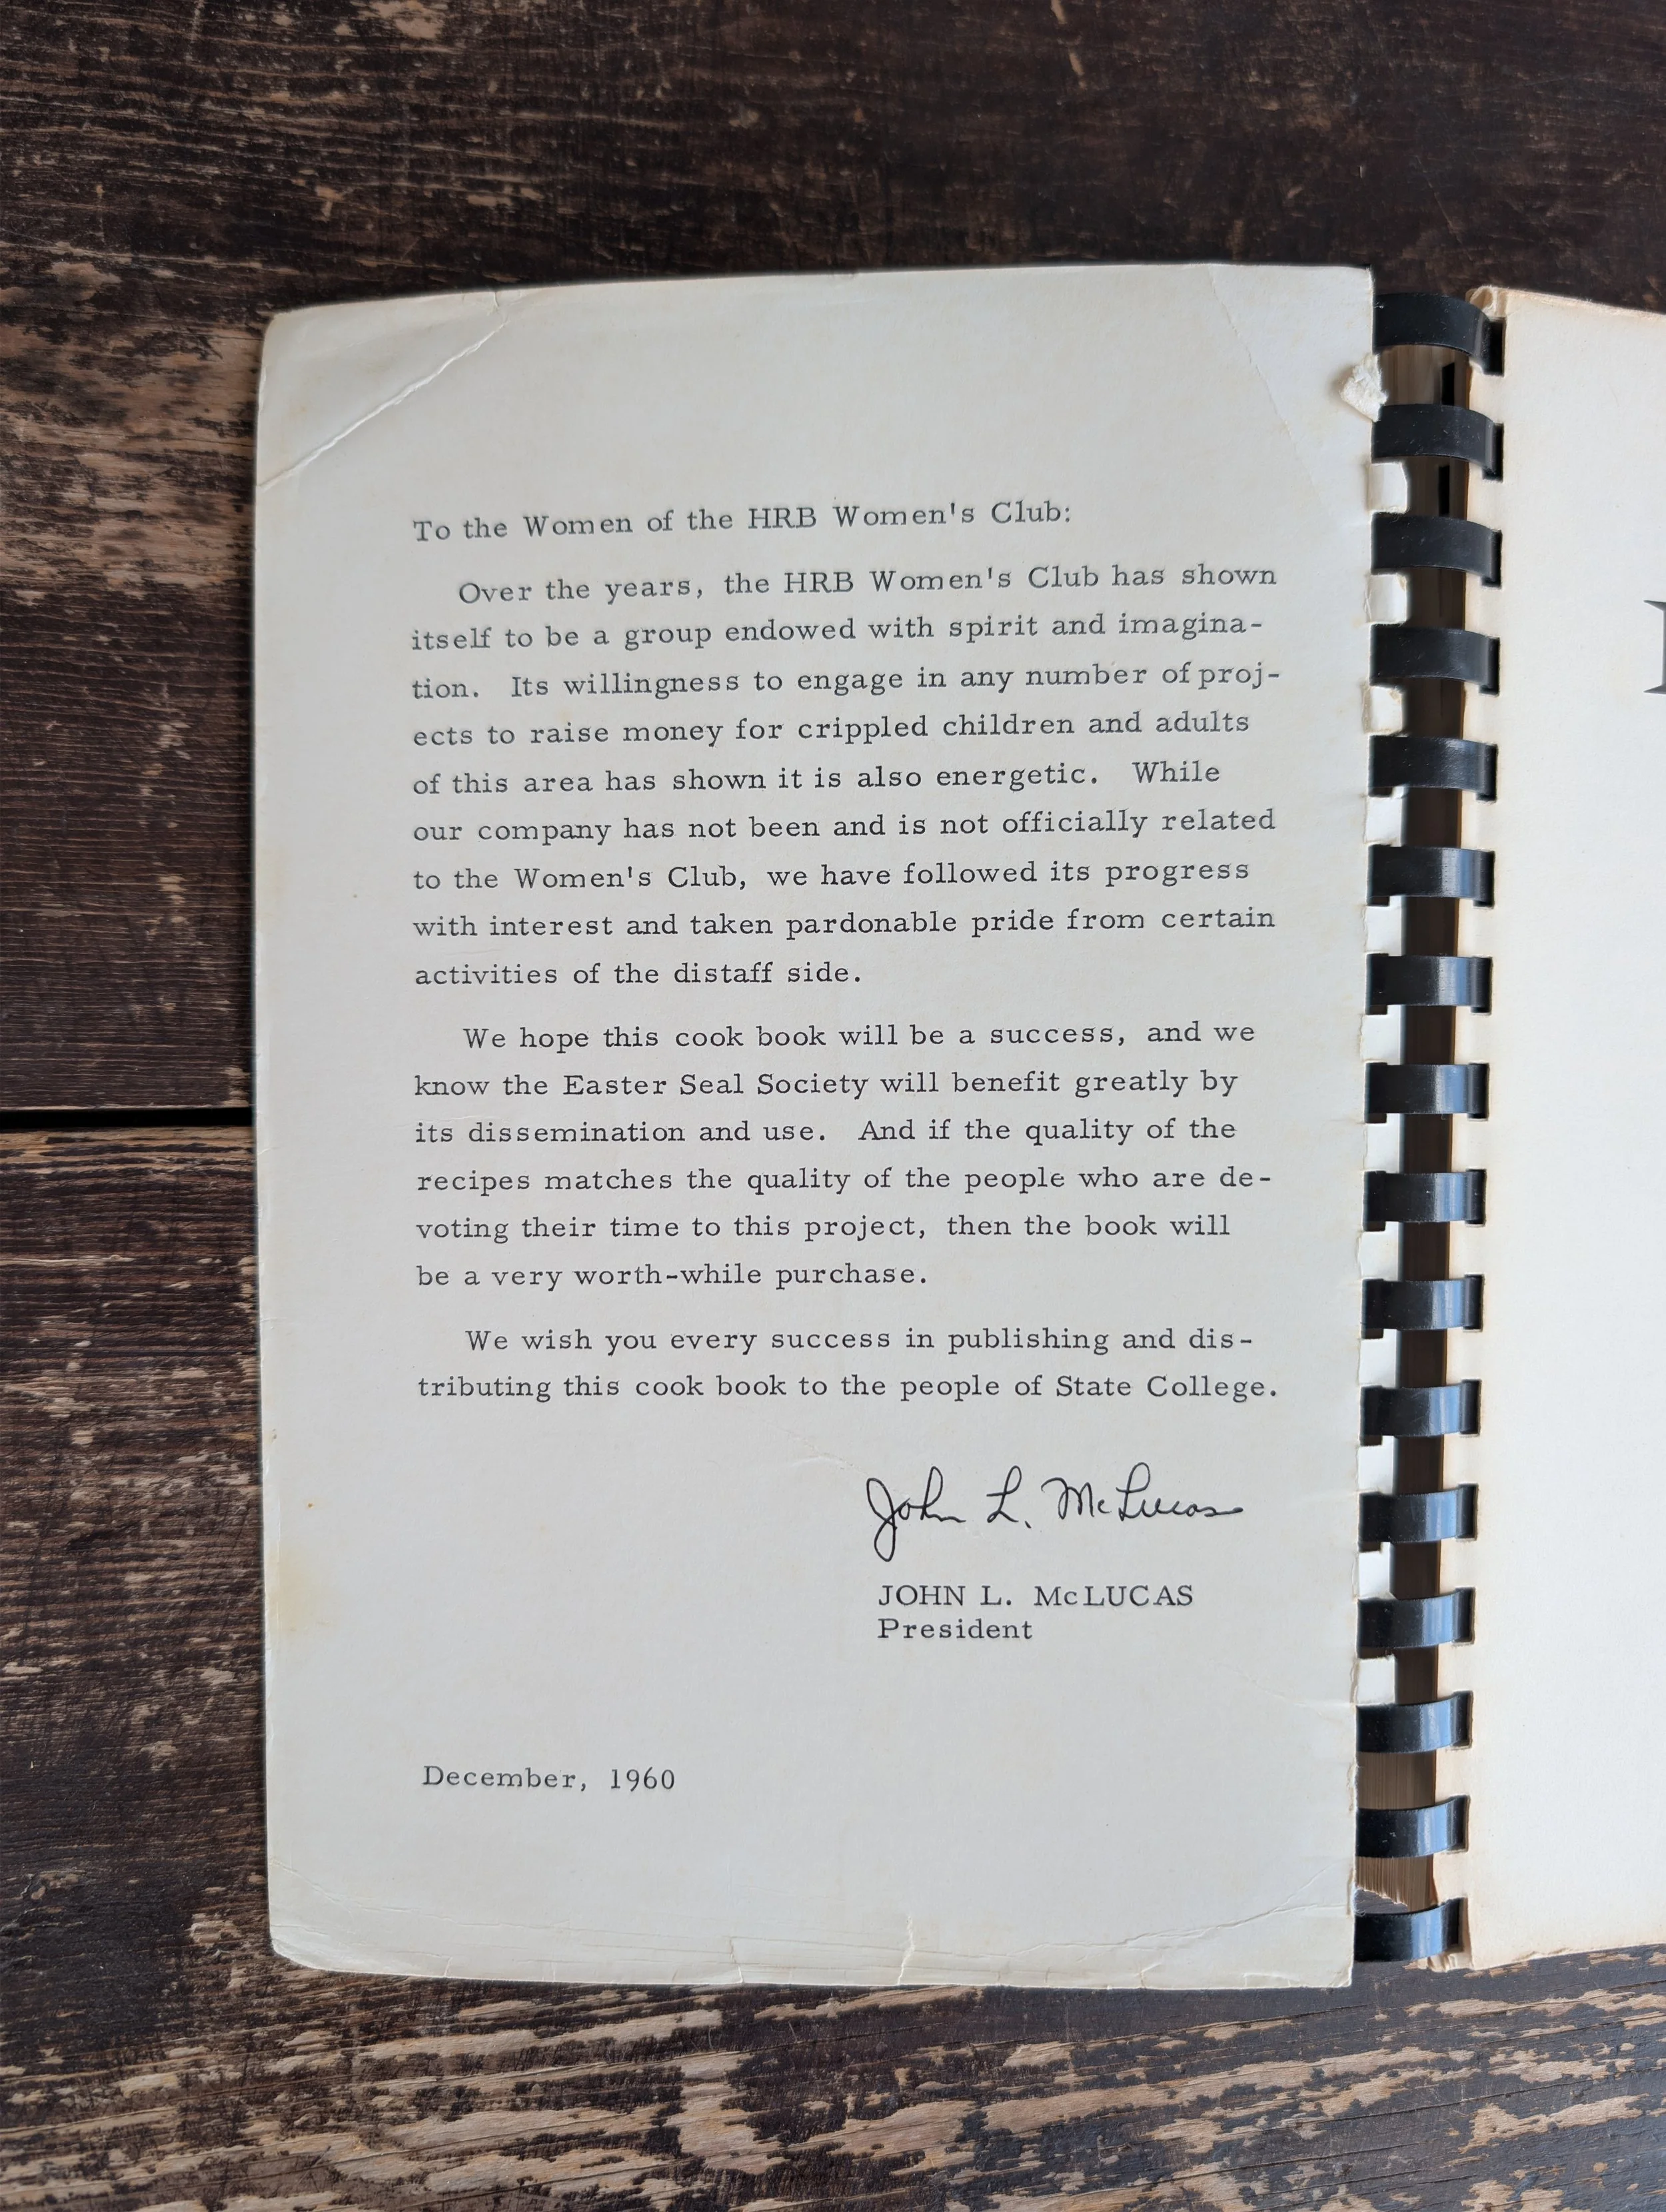 To the Women of the HRB Women's Club:
Over the years, the HRB Women's Club has shown
itself to be a group endowed with spirit and imagina-
tion. Its willingness to engage in any number of proj-
ects to raise money for crippled children and adults
of this area has shown it is also energetic. While
our company has not been and is not officially related
to the Women's Club, we have followed its progress
with interest and taken pardonable pride from certain
activities of the distaff side.
We hope this cook book will be a success, and we
know the Easter Seal Society will benefit greatly by
its dissemination and use. And if the quality of the
recipes matches the quality of the people who are de-
voting their time to this project, then the book will
be a very worth-while purchase.
We wish you every success in publishing and dis-
tributing this cook book to the people of State College.
John L. McLucas
JOHN L. McLUCAS
President
December, 1960